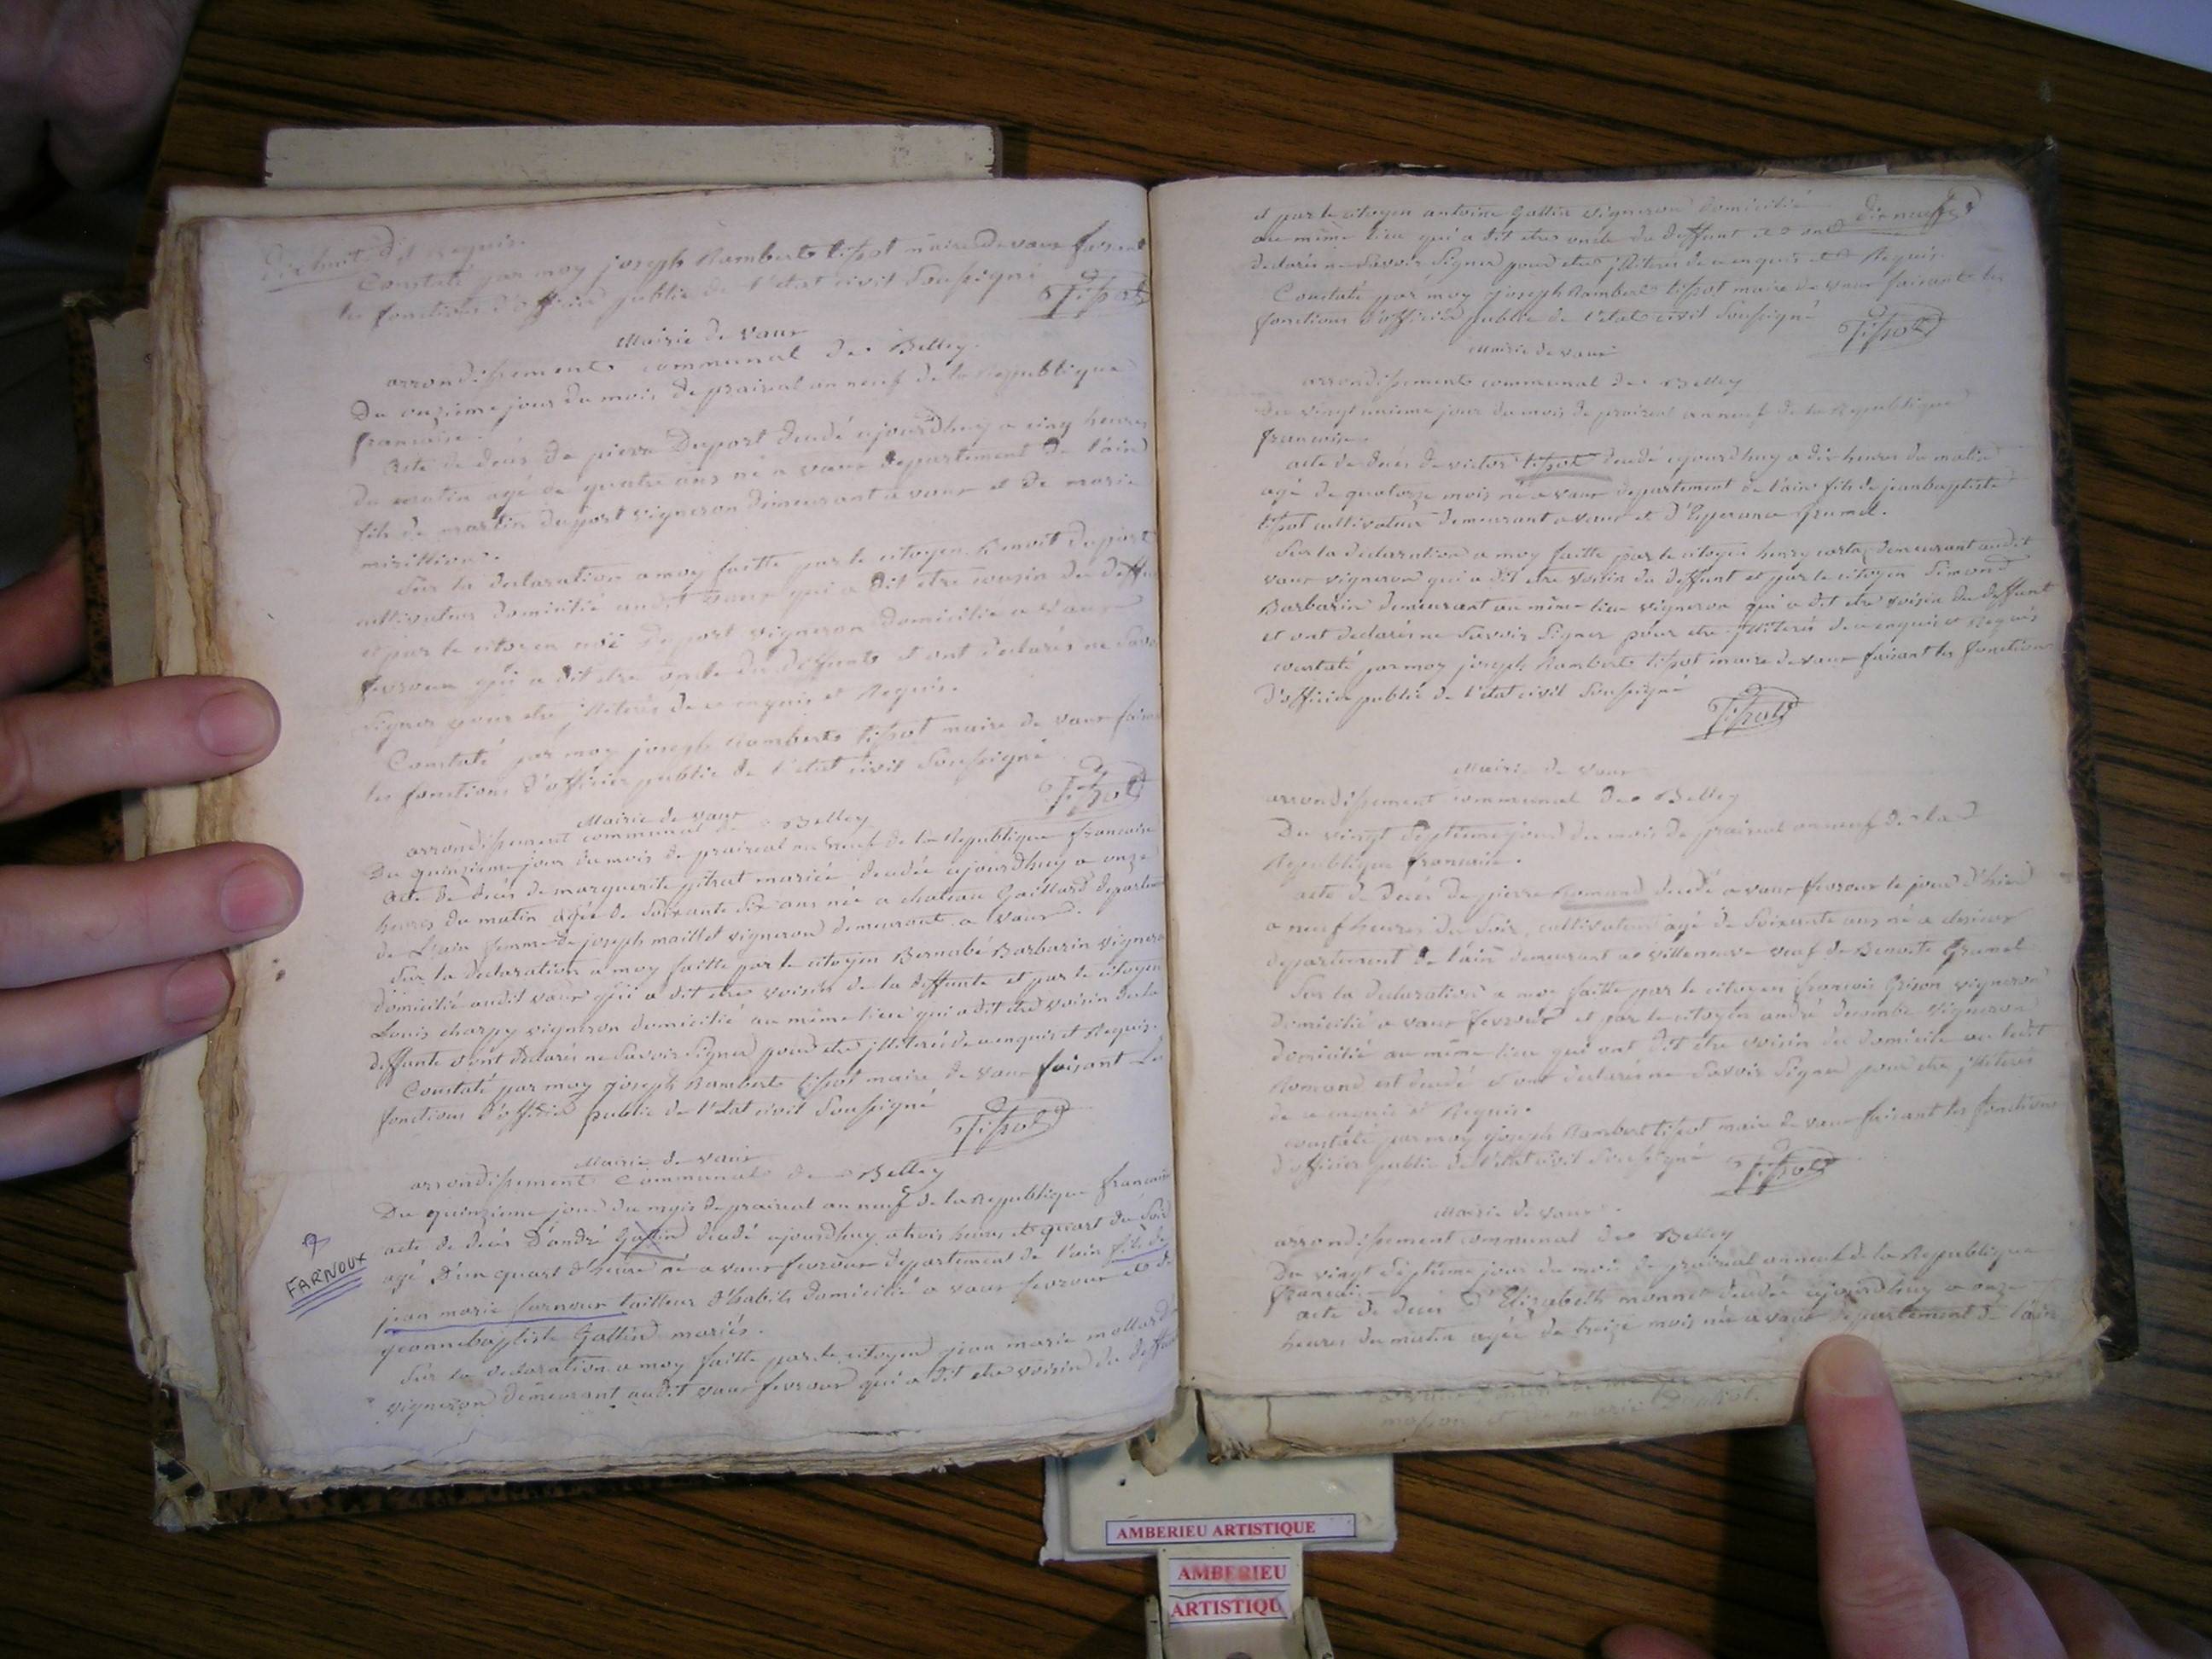 Dix huit et Requis.
Constaté par moy joseph Rambert tissot maire de vaux faisant
les fonctions d'officier public de l'état civil soussigné
Tissot
Mairie de vaux
arrondissement communal de Belley.
Du onzieme jour du mois de prairial an neuf de la Republique
francaise.
Acte de decés de pierre Duport decedé ajourdhuy a cinq heures
du matin agé de quatre ans né a vaux departement de l'ain
fils de martin duport vigneron demeurant a vaux et de marie
Sur la declaration a moy faitte par le citoyen Benoit duport
cultivateur domicilié audit vaux qui a dit etre cousin du deffunt
et par le citoyen duport vigneron domicilié a vaux
fevroux qui a dit etre oncle du deffunt et ont declarés ne savoir
signer pour etre jlliterés de ce enquis et Requis.
Constaté par moy joseph Rambert tissot maire de vaux faisant
les fonctions d'officier public de l'état civil soussigné
Tissot
Mairie de vaux
arrondissement communal de Belley
Du quinzieme jour du mois de prairial an neuf de la Republique francaise
Acte de decés de marguerite pitrat mariée decedée ajourdhuy a onze
heures du matin agée de soixante six ans née a chateau Gaillard departement
de L'ain femme de joseph maillet vigneron demeurant a vaux.
Sur la declaration a moy faitte par le citoyen Bernabé Barbarin vigneron
domicilié audit vaux qui a dit etre voisin de la deffunte et par le citoyen
Louis charpy vigneron domicilié au même lieu qui a dit etre voisin de la
deffunte et ont declarés ne savoir signer pour etre jlliterés de ce enquis et Requis.
Constaté par moy joseph Rambert tissot maire de vaux faisant Les
fonctions d'officier public de l'etat civil soussigné
Tissot
Mairie de vaux
arrondissement Communal de Belley
Du quinzieme jour du mois de prairial an neuf de la Republique francaise
acte de decés D'andré Gallin decedé ajourdhuy a trois heures et quart du soir
agé d'un quart d'heure né a vaux fevroux departement de l'ain fils de
FARNOUX
jean marie farnoux tailleur d'habits domicilié a vaux fevroux et de
jeannebaptiste Gallin mariés.
Sur la declaration a moy faitte par le citoyen jean marie mollard
vigneron demeurant audit vaux fevroux qui a dit etre voisin du deffunt
et par le citoyen antoine Gallin vigneron domicilié
Dix neuf
au même lieu qui a dit etre oncle du deffunt et ont
declarés ne savoir signer pour etre jlliterés de ce enquis et Requis.
Constaté par moy joseph Rambert tissot maire de vaux faisant les
fonctions d'officier public de l'etat civil soussigné
Tissot
Mairie de vaux
arrondissement communal de Belley
Du vingt unieme jour du mois de prairial an neuf de la Republique
francaise.
acte de decés de victor tissot decedé ajourdhuy a dix heures du matin
agé de quatorze mois né a vaux departement de l'ain fils de jeanbaptiste
tissot cultivateur demeurant a vaux et d'Esperance Grumet.
Sur la declaration a moy faitte par le citoyen henry cortaz demeurant audit
vaux vigneron qui a dit etre voisin du deffunt et par le citoyen Simond
Barbarin demeurant au même lieu vigneron qui a dit etre voisin du deffunt
et ont declarés ne savoir signer pour etre jlliterés de ce enquis et Requis
constaté par moy joseph Rambert tissot maire de vaux faisant les fonctions
d'officier public de l'etat civil soussigné
Tissot
Mairie de vaux
arrondissement communal de Belley
Du vingt septieme jour du mois de prairial an neuf de la
Republique francaise.
acte de decés de pierre Romand decedé a vaux fevroux le jour d'hier
a neuf heures du soir, cultivateur agé de soixante ans né a
departement de l'ain demeurant a villeneuve veuf de Benoite Grumet
Sur la declaration a moy faitte par le citoyen francois Grison vigneron
domicilié a vaux fevroux et par le citoyen andré decombe vigneron
domicilié au même lieu qui ont dit etre voisin du domicile ou ledit
Romand est decedé et ont declarés ne savoir signer pour etre jlliterés
de ce enquis et Requis.
constaté par moy joseph Rambert tissot maire de vaux faisant les fonctions
d'officier public de l'etat civil soussigné
Tissot
Mairie de vaux.
arrondissement communal de Belley
Du vingt septieme jour du mois de prairial an neuf de la Republique
francaise
acte de decés d'Elizabeth monnet decedée ajourdhuy a onze
heures du matin agée de treize mois née a vaux departement de l'ain
AMBERIEU ARTISTIQUE
AMBERIEU
ARTISTIQU